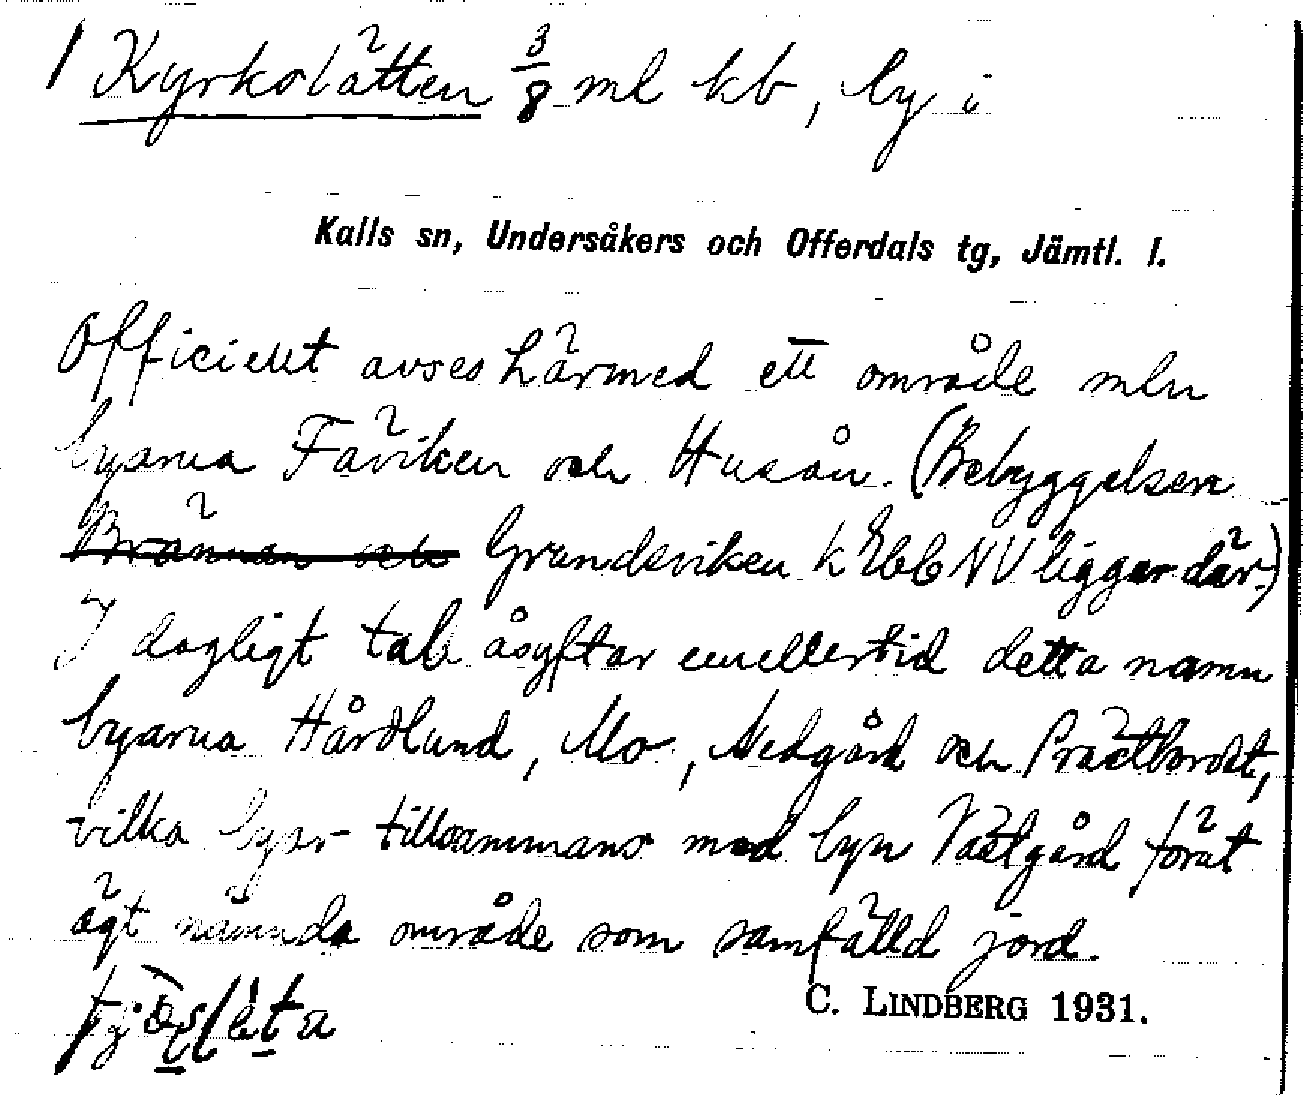 1 Kyrkolätten 3/8 ml kb, by i
Kalls sn, Undersåkers och Offerdals tg, Jämtl. l.
Officiellt avses härmed ett område mln
byarna Fäviken och Husån. (Bebyggelsen
Brännan och Grundsviken k Ebb NV ligger där.)
I dagligt tal åsyftar emellertid detta namn
byarna Hårdlund, Mo, Nedgård och Prästbordet,
vilka byar tillsammans med byn Västgård förut
ägt nämnda område som samfälld jord.
C. LINDBERG 1931.